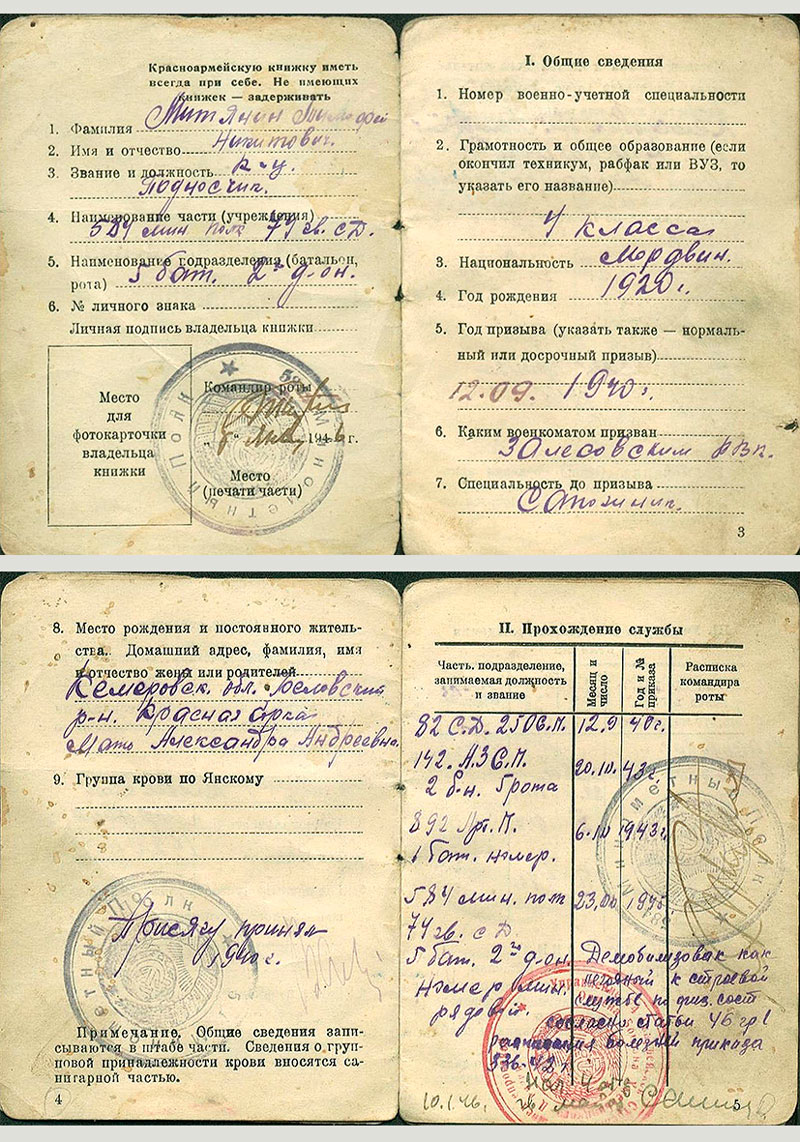 Красноармейскую книжку иметь
всегда при себе. Не имеющих
книжек — задерживать
1. Фамилия Митянин Тимофей
2. Имя и отчество Никитович.
3. Звание и должность к-ц.
Подносчик.
4. Наименование части (учреждения)
584 мин полк 74 гв. с.д.
5. Наименование подразделения (батальон,
рота) 5 бат. 2й д-он.
6. № личного знака
Личная подпись владельца книжки
Место
для
фотокарточки
владельца
книжки
Командир роты
1946 г.
Место
(печати части)
Минометный Полк
I. Общие сведения
1. Номер военно-учетной специальности
2. Грамотность и общее образование (если
окончил техникум, рабфак или ВУЗ, то
указать его название)
4 класса
3. Национальность Мордвин.
4. Год рождения 1920 г.
5. Год призыва (указать также — нормаль-
ный или досрочный призыв)
12.09. 1940 г.
6. Каким военкоматом призван
Залесовским РВК.
7. Специальность до призыва
Сапожник.
3
8. Место рождения и постоянного житель-
ства. Домашний адрес, фамилия, имя
и отчество жены или родителей
Кемеровск. обл.
р-н. Красная Горка
Мать Александра Андреевна.
9. Группа крови по Янскому
Присягу принял
1940 г.
Примечание. Общие сведения запи-
сываются в штабе части. Сведения о груп-
повой принадлежности крови вносятся са-
нитарной частью.
4
II. Прохождение службы
Часть, подразделение,
занимаемая должность
и звание
Месяц и
число
Год и №
приказа
Расписка
командира
роты
82 С.Д. 250 С.П. 12.9 40 г.
142. А.З.С.П. 20.10. 43 г.
2 б-н. 9 рота
892 Арт. П. 6.10 1943 г.
1 бат. номер.
584 мин. полк 1945.
74 гв. с д
5 бат. 2й д-он. Демобилизован как
номер мин. негодный к строевой
рядовой. службе по физ. сост
согласно статьи 46 гр 1
расписания болезней приказа
336-42 г.
10.1.46.
5